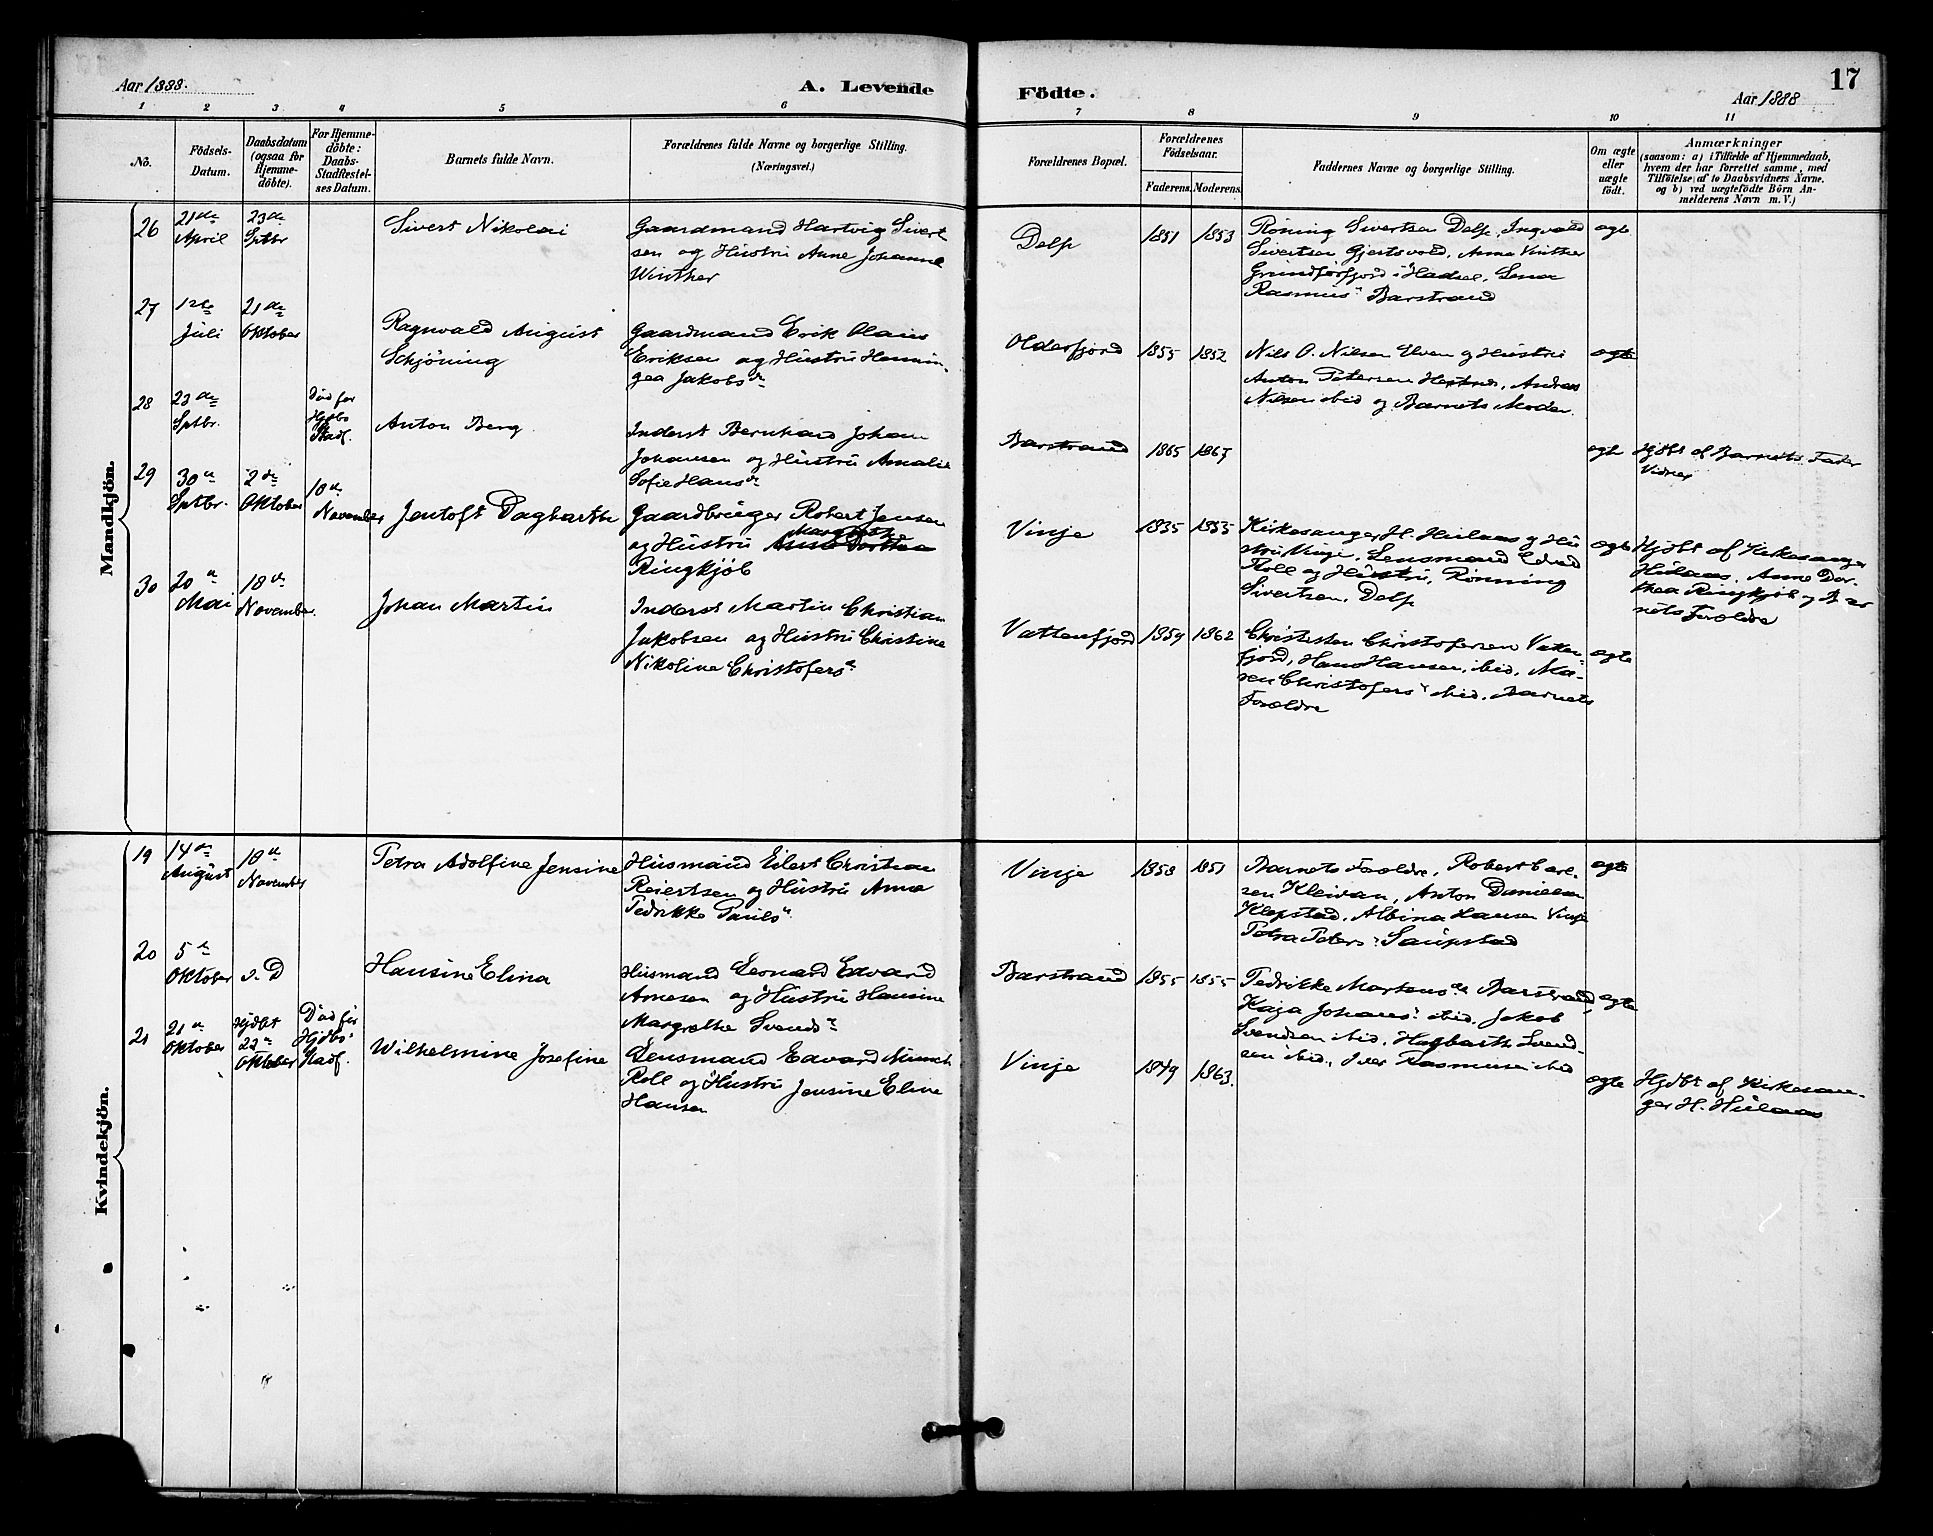 Aar 1888.
A. Levende
Födte.
Aar 1888
17
1 2 3 4 5 6 7 8 9 10 11
No.
Födsels-
Datum.
Daabsdatum
(ogsaa for
Hjemme-
döbte).
For Hjemme-
döbte:
Daabs-
Stadfæstel-
ses Datum.
Barnets fulde Navn.
Forældrenes fulde Navne og borgerlige Stilling.
(Næringsvei.)
Forældrenes Bopæl.
Forældrenes
Födselsaar.
Faderens.
Moderens.
Faddernes Navne og borgerlige Stilling.
Om ægte
eller
uægte
födt.
Anmærkninger
(saasom: a) i Tilfælde af Hjemmedaab,
hvem der har forrettet samme, med
Tilföielse af to Daabsvidners Navne.
og b) ved uægtefödte Börn An-
melderens Navn m. V.)
Mandkjön.
26
21de
April
23de
Sptbr
Sivert Nikolai
Gaardmand Hartvig Sivert
sen og Hustru Anne Johanne
Winther
Delp
1851
1853
Röning Sivertsen Delp, Ingvald
Sivertsen Gjertsvold, Anna Vinther
Grundforfjord i Hadsel, Lena
Rasmus Barstrand
ægte
27
1ste
Juli
21de
Oktober
Ragnvald August
Schjöning
Gaardmand Erik Olaus
Eriksen og Hustru Hennin-
gea Jakobsdr
Olderfjord
1855
1852
Nils O. Nilsen Elven og Hustru
Anton Petersen Andreas
Nilsen ibid og Barnets Moder.
ægte
28
23de
Sptbr.
Död för
Hjdbs
Stadf.
Anton Berg
Inderst Bernhard Johan
Johansen og Hustru Amalie
Sofie Hansdr
Barstrand
1865
1867
ægte
Hjdbt af Barnets Fader
29
30te
Sptbr.
2de
Oktober
18de
November
Jentoft Dagbarthe
Gaardbruger Robert Jensen
og Hustru Margrethe
Anne Dorthea
Ringkjöb
Vinje
1835
1855
Kirkesanger H. Huilaas og Hu
stru Vinje, Lensmand Edvard
Roll og Hustru, Rönning
Sivertsen, Delp
ægte
Hjdbt af Kirkesanger
Huilaas, Anne Dor-
thea Ringkjöb og Bar
nets Forældre
30
20de
Mai
18de
November
Johan Martin
Inderst Martin Christian
Jakobsen og Hustru Christine
Nikoline Christofersdr
Vattenfjord
1859
1862
Christofersen Vatten-
fjord, Hans Hansen, ibid, Ma-
ren Christofersdr ibid. Barnets
Forældre
ægte
Kvindekjön.
19
14de
August
18de
November
Petra Adolfine Jensine
Husmand Eilert Christian
Reiertsen og Hustru Anna
Fedrikke Paulsdr
Vinje
1858
1851
Barnets Forældre, Robert Carl-
sen Kleivan, Anton Danielsen
Klepstad, Albina Hansen Vinje
Petra Peters Saupstad
ægte
20
5te
Oktober
s. D
Hansine Elina
Husmand Leonard Edvard
Arnesen og Hustru Hansine
Margrethe Svendsdr
Barstrand
1855
1855
Fedrikke Martensdr Barstrand,
Kaja Johans ibid, Jakob
Svendsen ibid, Hagbarth Svend-
sen ibid, Iver Rasmusen ibid
ægte
21
21de
Oktober
Hjdbt
22de
Oktober
Död för
Hjdbs
Stadf.
Wilhelmine Josefine
Lensmand Edvard Munch
Roll og Hustru Jensine Eline
Hansen
Vinje
1849
1863.
ægte
Hjdbt af Kirkesan-
ger H. Huilaas